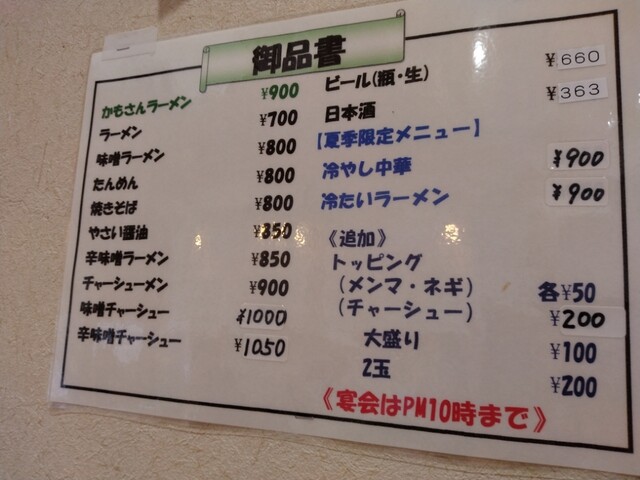 御品書
かもさんラーメン ¥900
ラーメン ¥700
味噌ラーメン ¥800
たんめん ¥800
焼きそば ¥800
やさい醤油 ¥850
辛味噌ラーメン ¥850
チャーシューメン ¥900
味噌チャーシュー ¥1000
辛味噌チャーシュー ¥1050
ビール(瓶・生) ¥660
日本酒 ¥363
【夏季限定メニュー】
冷やし中華 ¥900
冷たいラーメン ¥900
《追加》
トッピング
(メンマ・ネギ) 各¥50
(チャーシュー) ¥200
大盛り ¥100
2玉 ¥200
《宴会はPM10時まで》